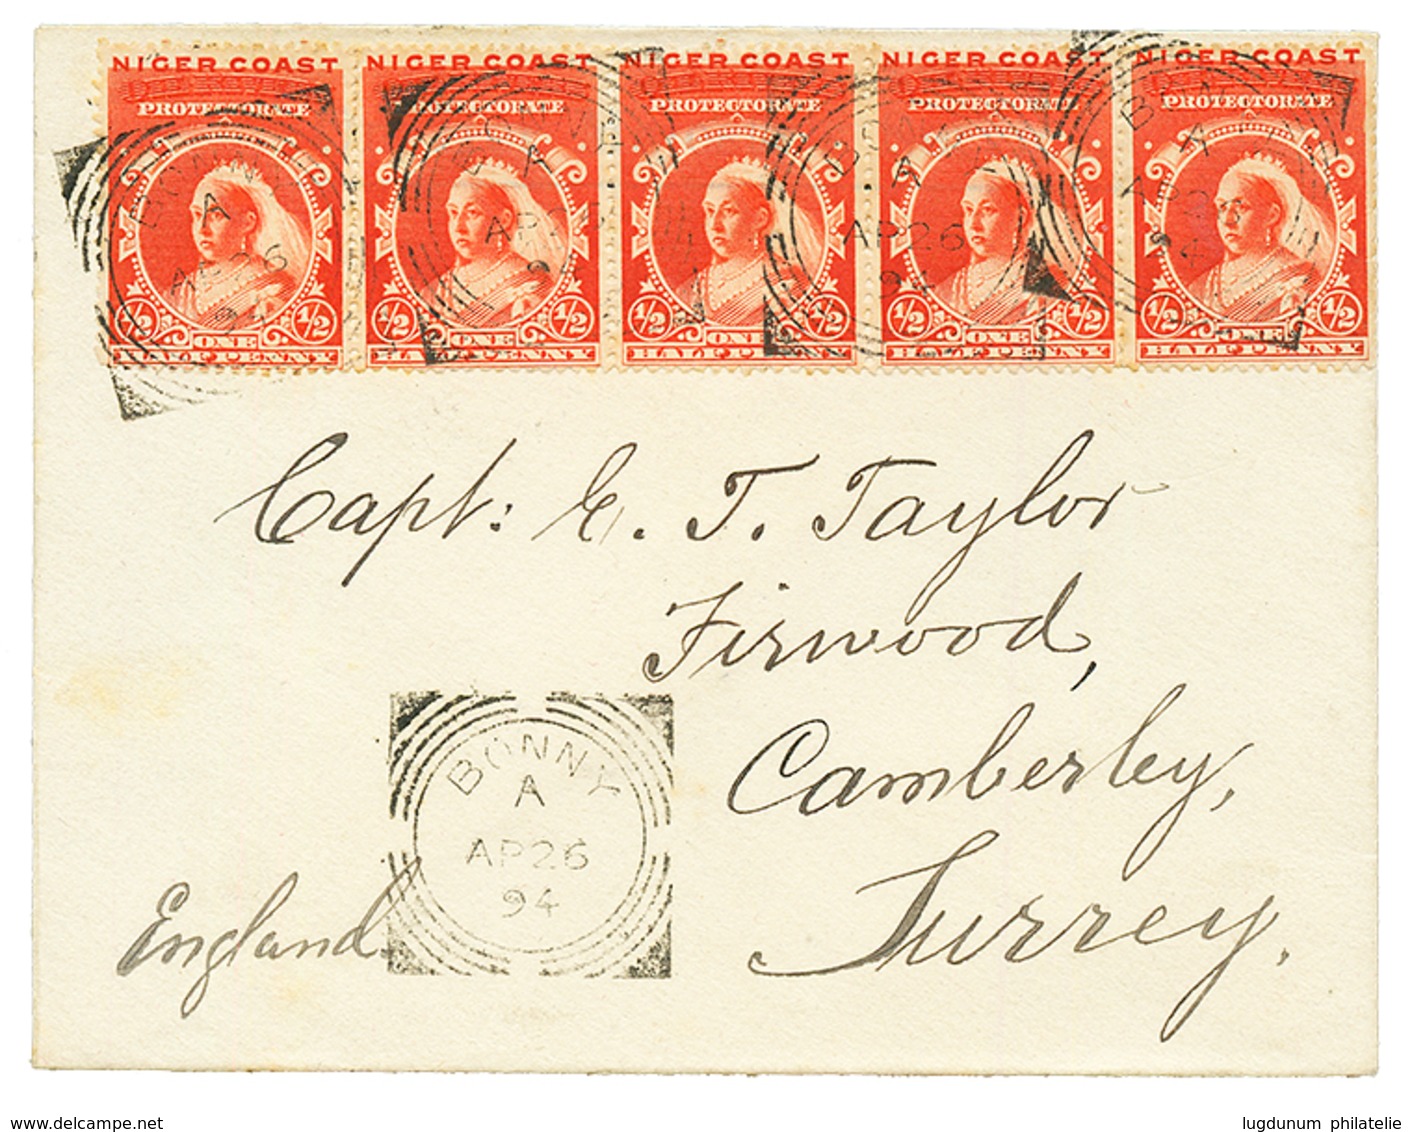 NIGER COAST NIGER COAST NIGER COAST NIGER COAST NIGER COAST
PROTECTORATE PROTECTORATE PROTECTORATE PROTECTORATE PROTECTORATE
BONNY
A A A A
AP26 AP26 AP26 AP26
94 94 94 94
½ ½ ½ ½ ½ ½ ½ ½ ½ ½
ONE ONE ONE ONE ONE
HALF PENNY HALF PENNY HALF PENNY HALF PENNY HALF PENNY
Capt: C. T. Taylor
Firwood,
Camberley,
Surrey.
England
BONNY
A
AP26
94
www.delcampe.net
lugdunum philatelie